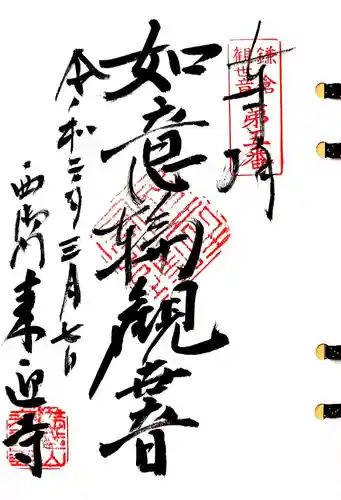 奉拝
鎌倉
観世音
第五番
如意輪観世音
令和三年三月七日
西御門
来迎寺